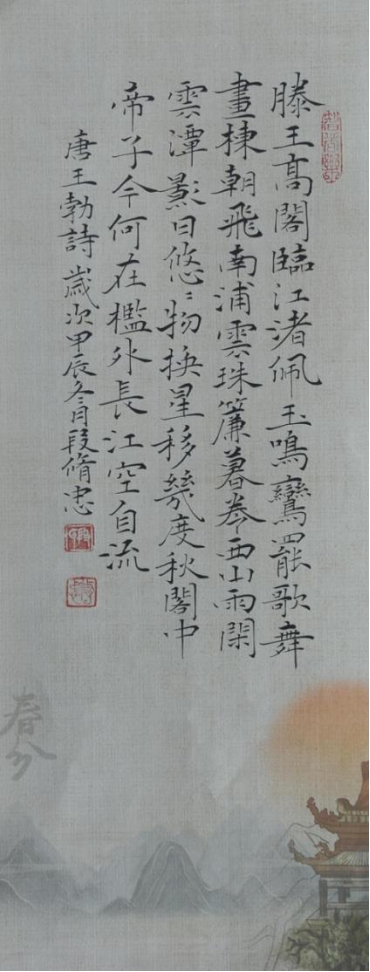 滕王高閣臨江渚佩玉鳴鸞罷歌舞
畫棟朝飛南浦雲珠簾暮卷西山雨閑
雲潭影日悠〻物換星移幾度秋閣中
帝子今何在檻外長江空自流
唐王勃詩歲次甲辰冬月段脩忠
春分